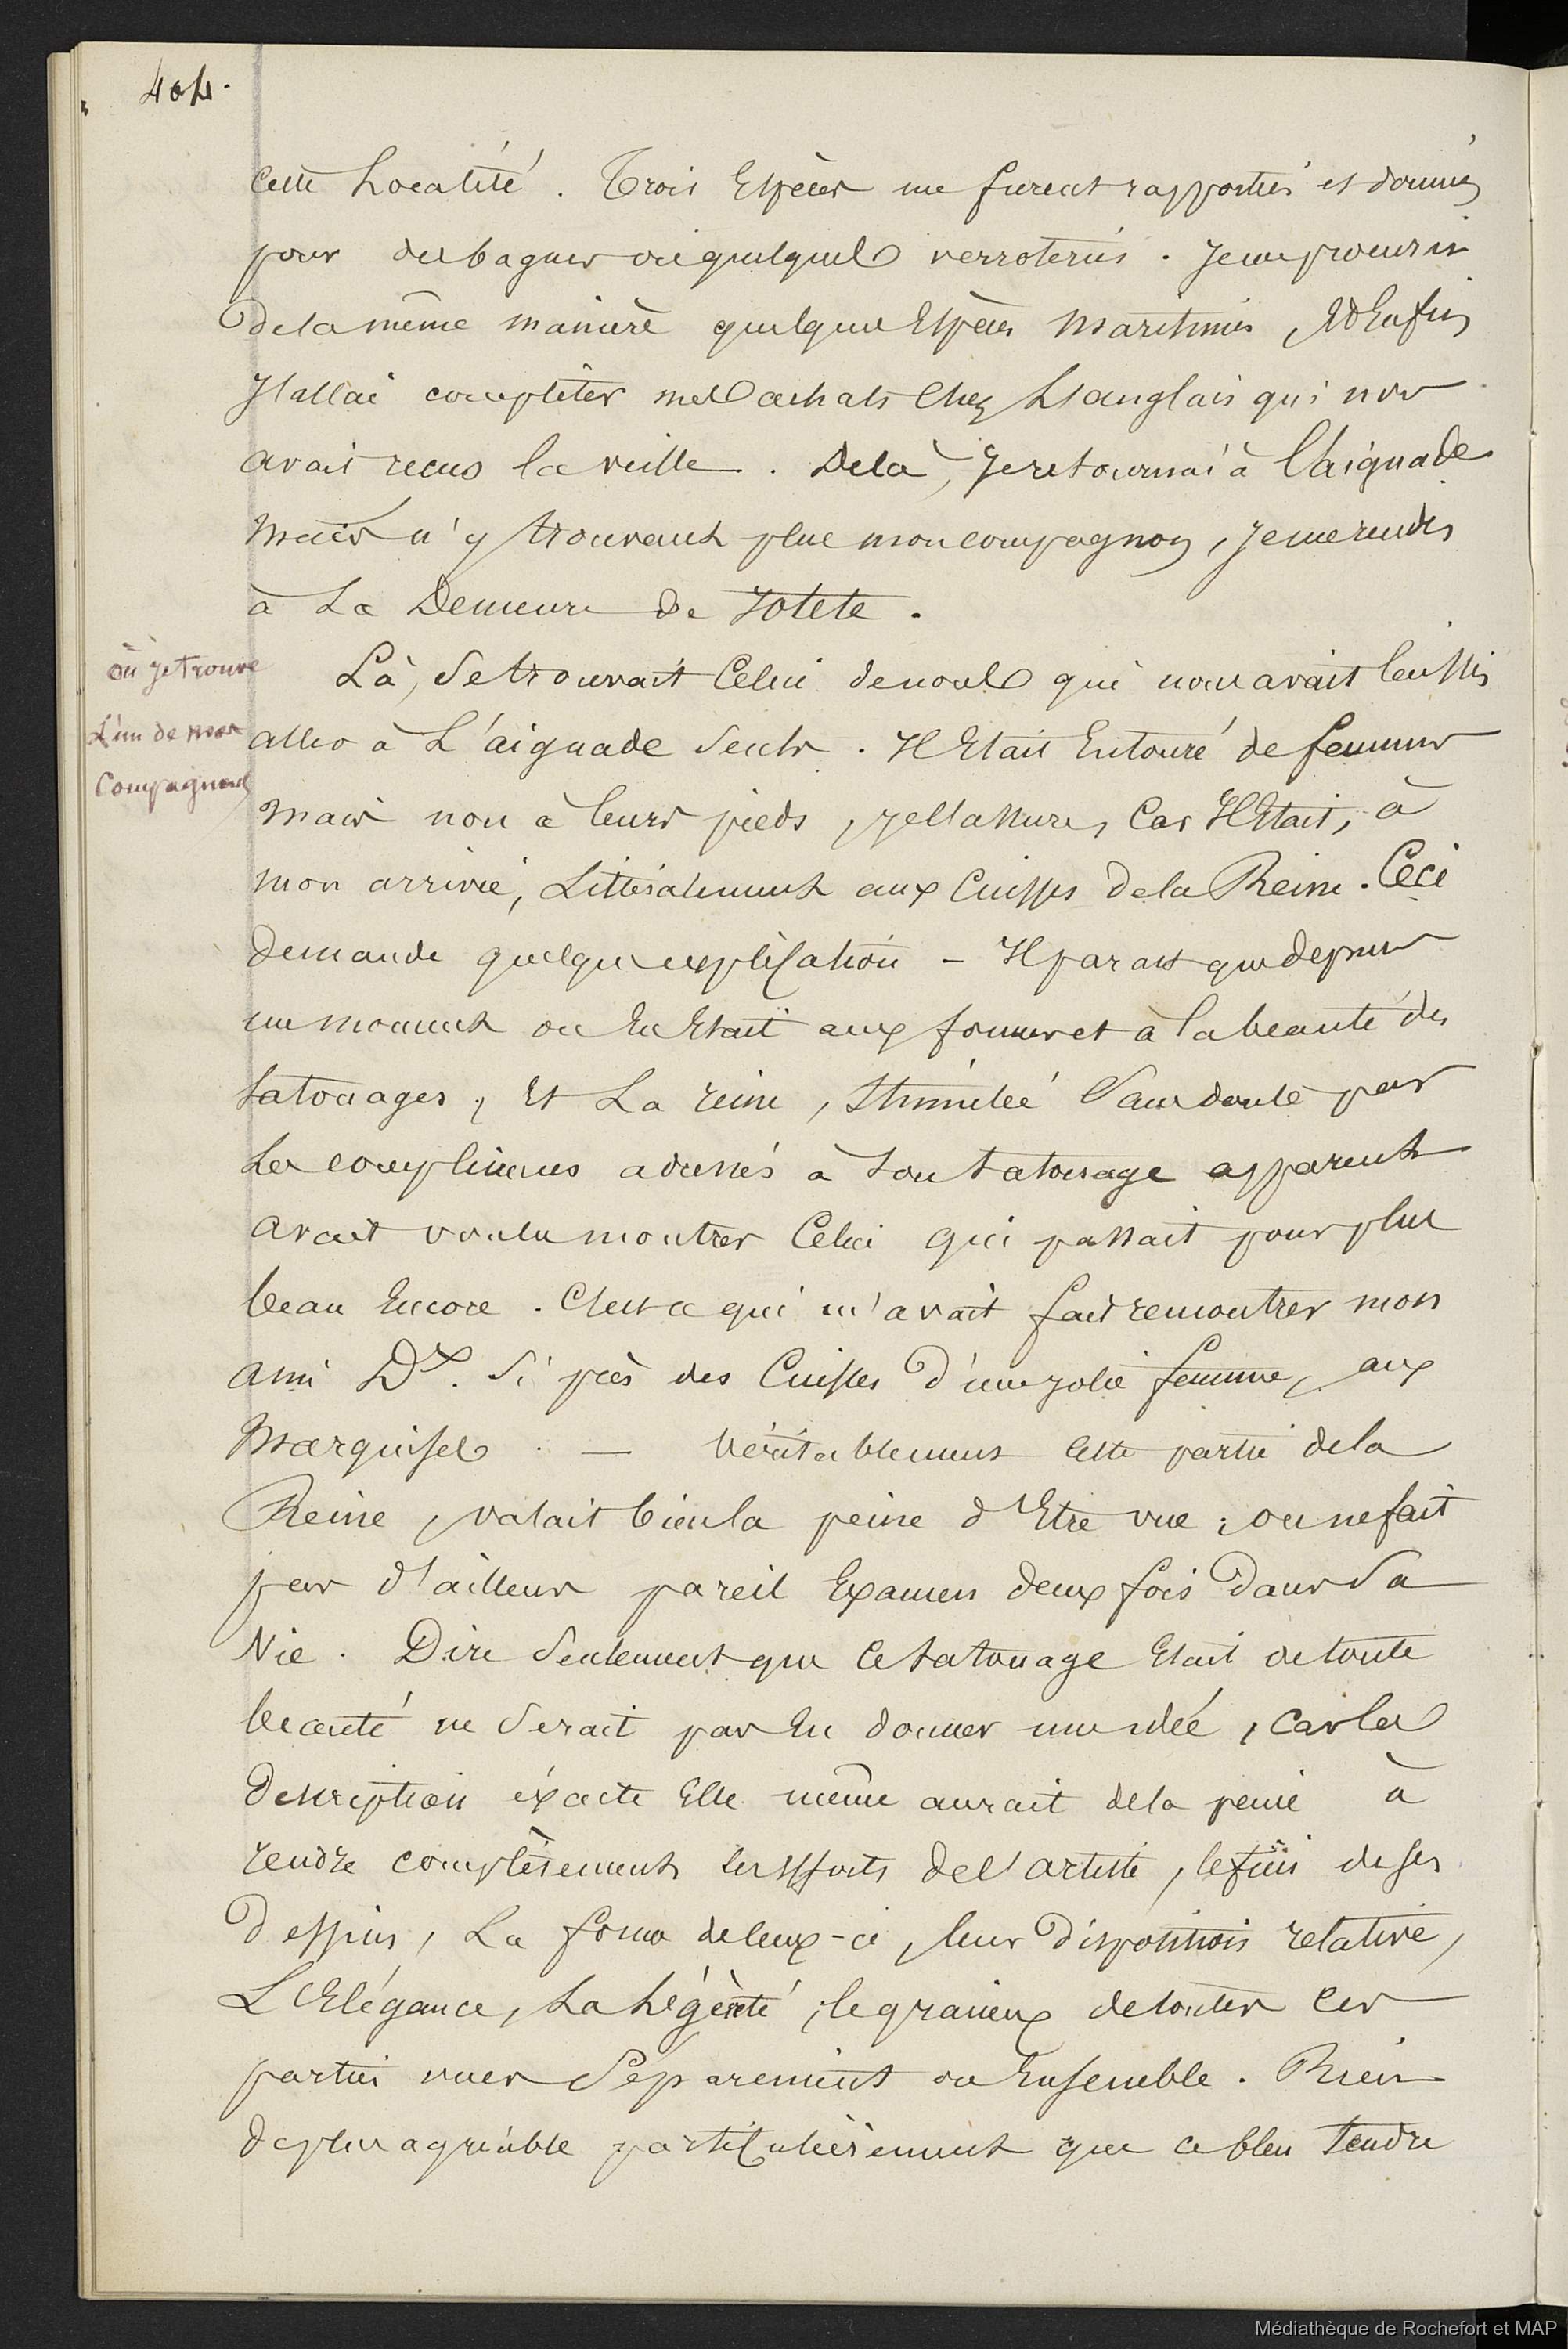 404.
cette Localité. Trois Espèces me furent rapportées et données
pour des bagues ou quelques verroteries. Je me procurai
de la même manière quelques Espèces maritimes, et Enfin
J'allai compléter mes achats chez L'anglais qui nous
avait reçus la veille. De là, Je retournai à l'aiguade
mais n'y trouvant plus mon compagnon, Je me rendis
à La Demeure de Yotété.
où je trouve
L'un de mes
Compagnons
Là, Se trouvait Celui de nous qui nous avait laissés
aller à L'aiguade Seuls. Il Etait Entouré de femmes
mais non à leurs pieds, je l'assure, Car Il Etait, à
mon arrivée, Littéralement aux Cuisses de la Reine. Ceci
demande quelque explication - Il parait que depuis
un moment on En Etait aux formes et à la beauté des
tatouages, Et La reine, Stimulée Sans doute par
Les compliments adressés à Son tatouage apparent
avait voulu montrer Celui qui passait pour plus
beau Encore. C'est ce qui m'avait fait rencontrer mon
ami Dx. Si près des Cuisses d'une jolie femme, aux
Marquises. — Véritablement cette partie de la
Reine, valait bien la peine d'Etre vue ; on ne fait
pas d'ailleurs pareil Examen deux fois dans Sa
Vie. Dire Seulement que Ce tatouage Etait de toute
beauté ne Serait pas En donner une idée, car la
description éxacte Elle même aurait de la peine à
rendre complètement les Efforts de l'artiste, le fini de ses
dessins, La forme de Ceux-ci, leur disposition relative,
L'Elégance, La Légèreté, le gracieux de toutes Ces
parties vues Séparément ou Ensemble. Rien
de plus agréable particulièrement que ce bleu tendre
Médiathèque de Rochefort et MAP